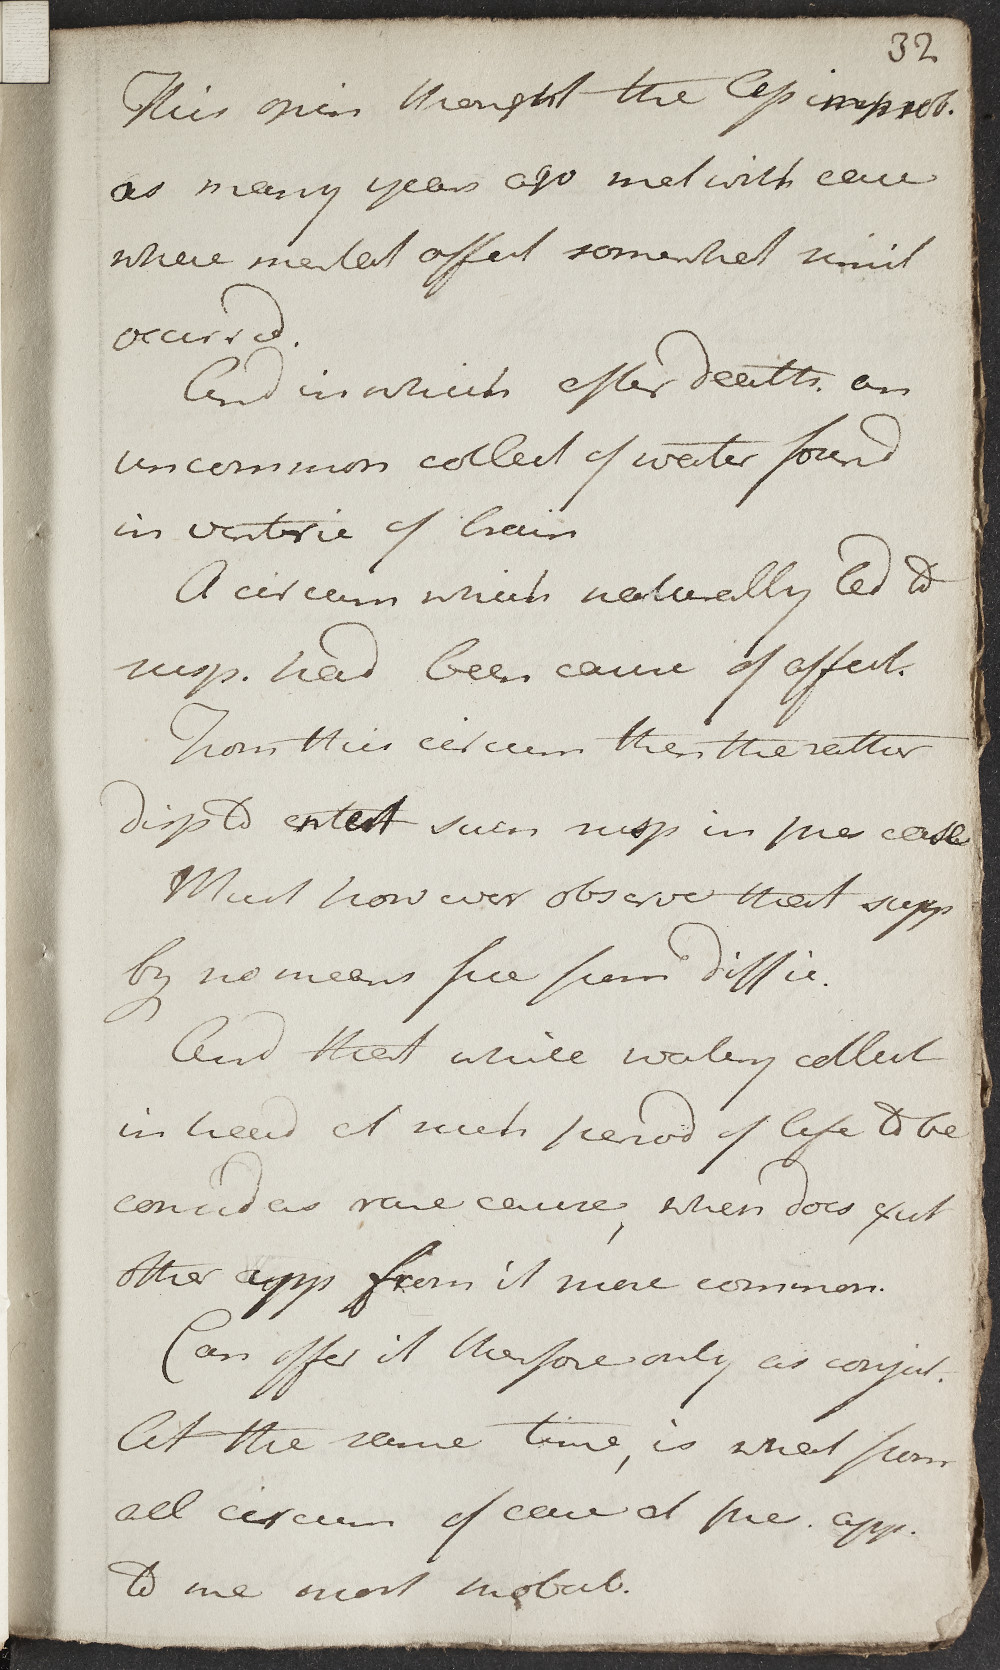 32
This opin thought the less improb.
as many years ago met with case
where mental affect somewhat simil
occurrd.
And in which after death. an
uncommon collect of water found
in ventric of brain
A circum which naturally led to
susp. had been cause of affect.
From this circum then the rather
disp to entert such susp in pres case
Must however observe that supp
by no means free from diffic.
And that while watery collect
in head at such period of life to be
considd as rare cause, when does exist
other app from it more common.
Can offer it therefore only as conject.
At the same time, is what from
all circum of case at pre. app.
to me most probab.